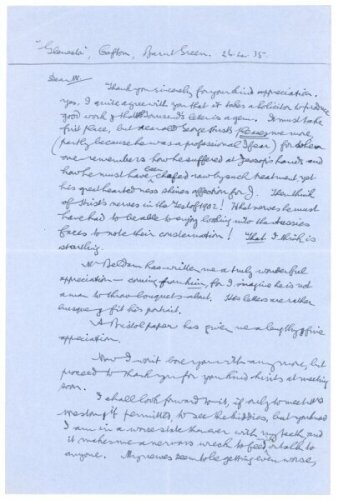 "Glenesta", Crofton, Barnt Green. 26-4-35.
Dear
Thank you sincerely for your kind appreciation.
Yes. I quite agree with you that it takes a solicitor to produce
good work & that Townsend's letter is a gem. It must take
first place, but dear old George Hirst's pleases me more,
(partly because he was a professional I fear) for when
one remembers how he suffered at Jessop's hands and
how he must have been chafed raw by such treatment, yet
his great heartedness shines affection for J. Then think
of Hirst's nerves in the Test of 1902! What nerves he must
have had to be able to enjoy looking into the Aussies
faces to note their consternation! That I think is
startling.
Mr Beldam has written me a truly wonderful
appreciation – coming from him, for I imagine he is not
a man to throw bouquets about. His letters are rather
brusque & fit his portrait.
A Bristol paper has given me a lengthy & fine
appreciation.
Now I won't bore you with any more, but
proceed to thank you for your kind hints at meeting
soon.
I shall look forward to it, if only to meet
permitted to see the kiddies, but
I am in a worse state than ever with my teeth and
it makes me a nervous wreck to feed or talk to
anyone. My nerves seem to be getting even worse,